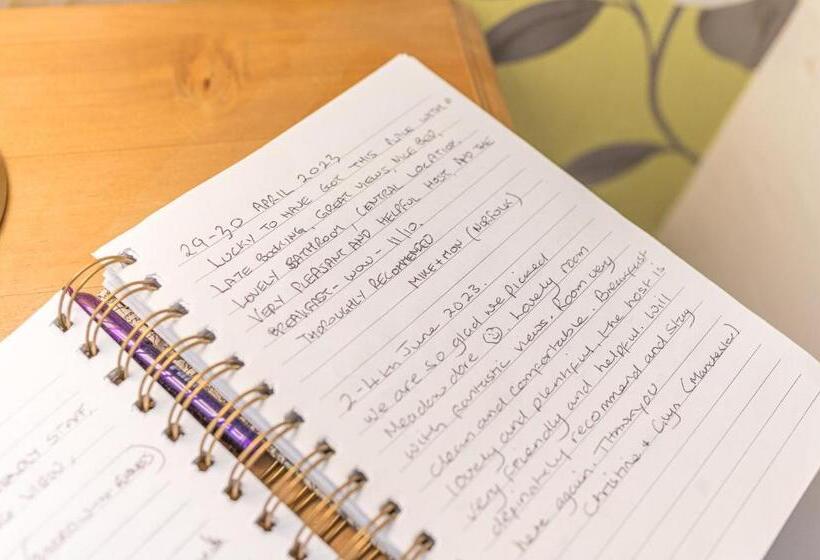 29-30 APRIL 2023
LUCKY TO HAVE GOT THIS PLACE WITH A
LATE BOOKING, GREAT VIEWS, NICE BED,
LOVELY BATHROOM, CENTRAL LOCATION.
VERY PLEASANT AND HELPFUL HOST, AND THE
BREAKFAST - WOW - 11/10.
THOROUGHLY RECOMMENDED
MIKE + MON (NORFOLK)
2-4th June 2023.
We are so glad we picked
Meadowdore ☺. Lovely room
with fantastic views. Room very
clean and comfortable. Breakfast
lovely and plentiful, the host is
very friendly and helpful. Will
definately recommend and stay
here again. Thankyou
Christine + Glyn (Manchester)
START.
VIEW.